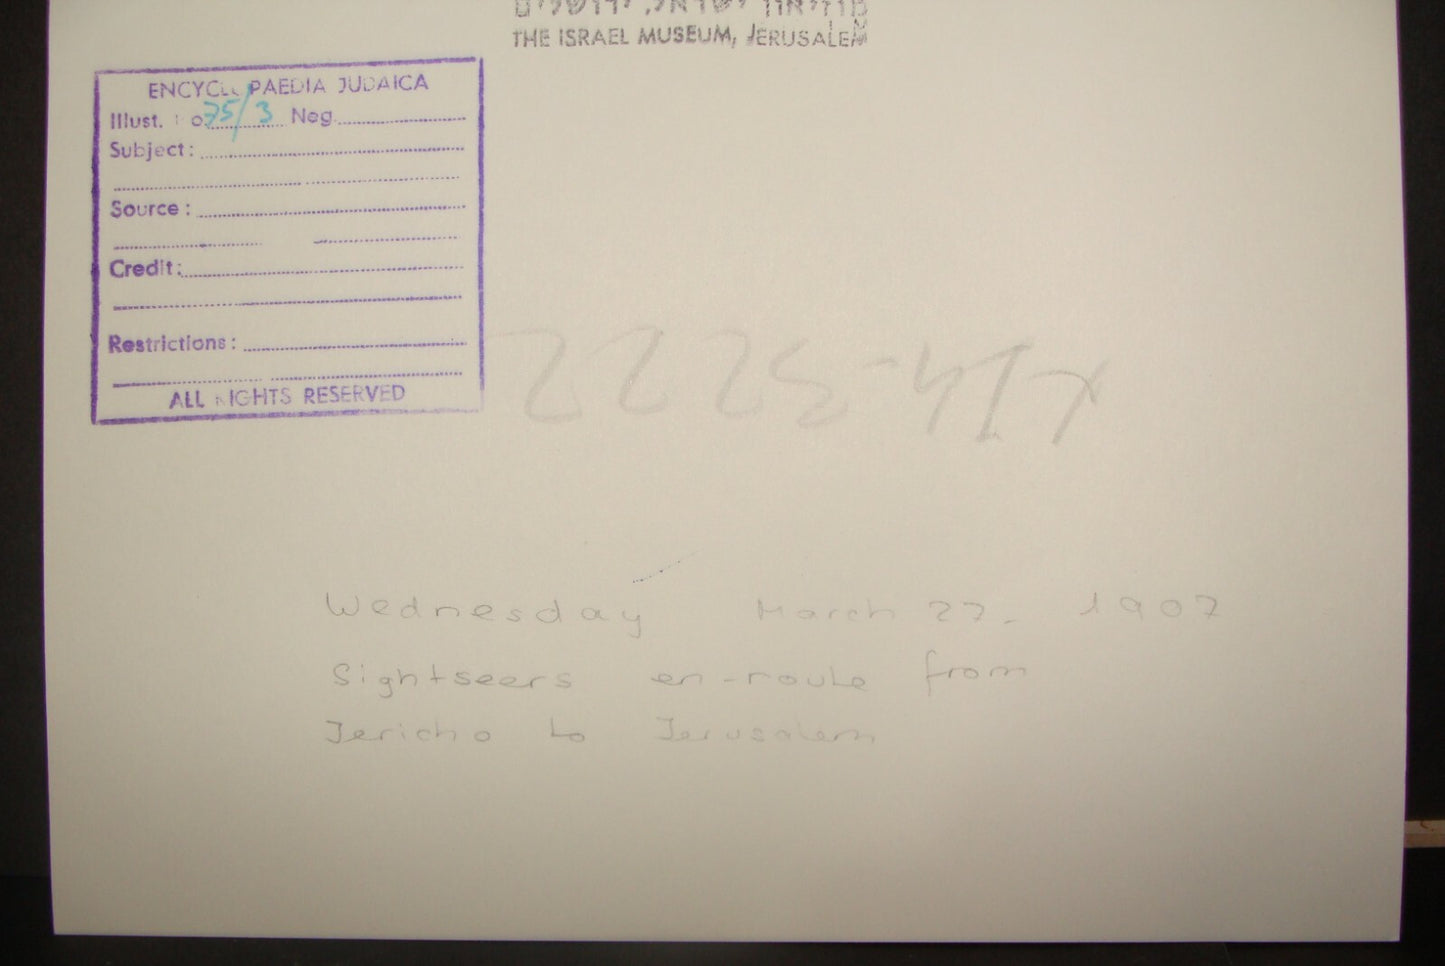 מוזיאון ישראל, ירושלים
THE ISRAEL MUSEUM, JERUSALEM
ENCYCLOPAEDIA JUDAICA
Illust. : 075/3 Neg.
Subject:
Source:
Credit:
Restrictions:
ALL RIGHTS RESERVED
Wednesday March 27. 1907
Sightseers en-route from
Jericho to Jerusalem